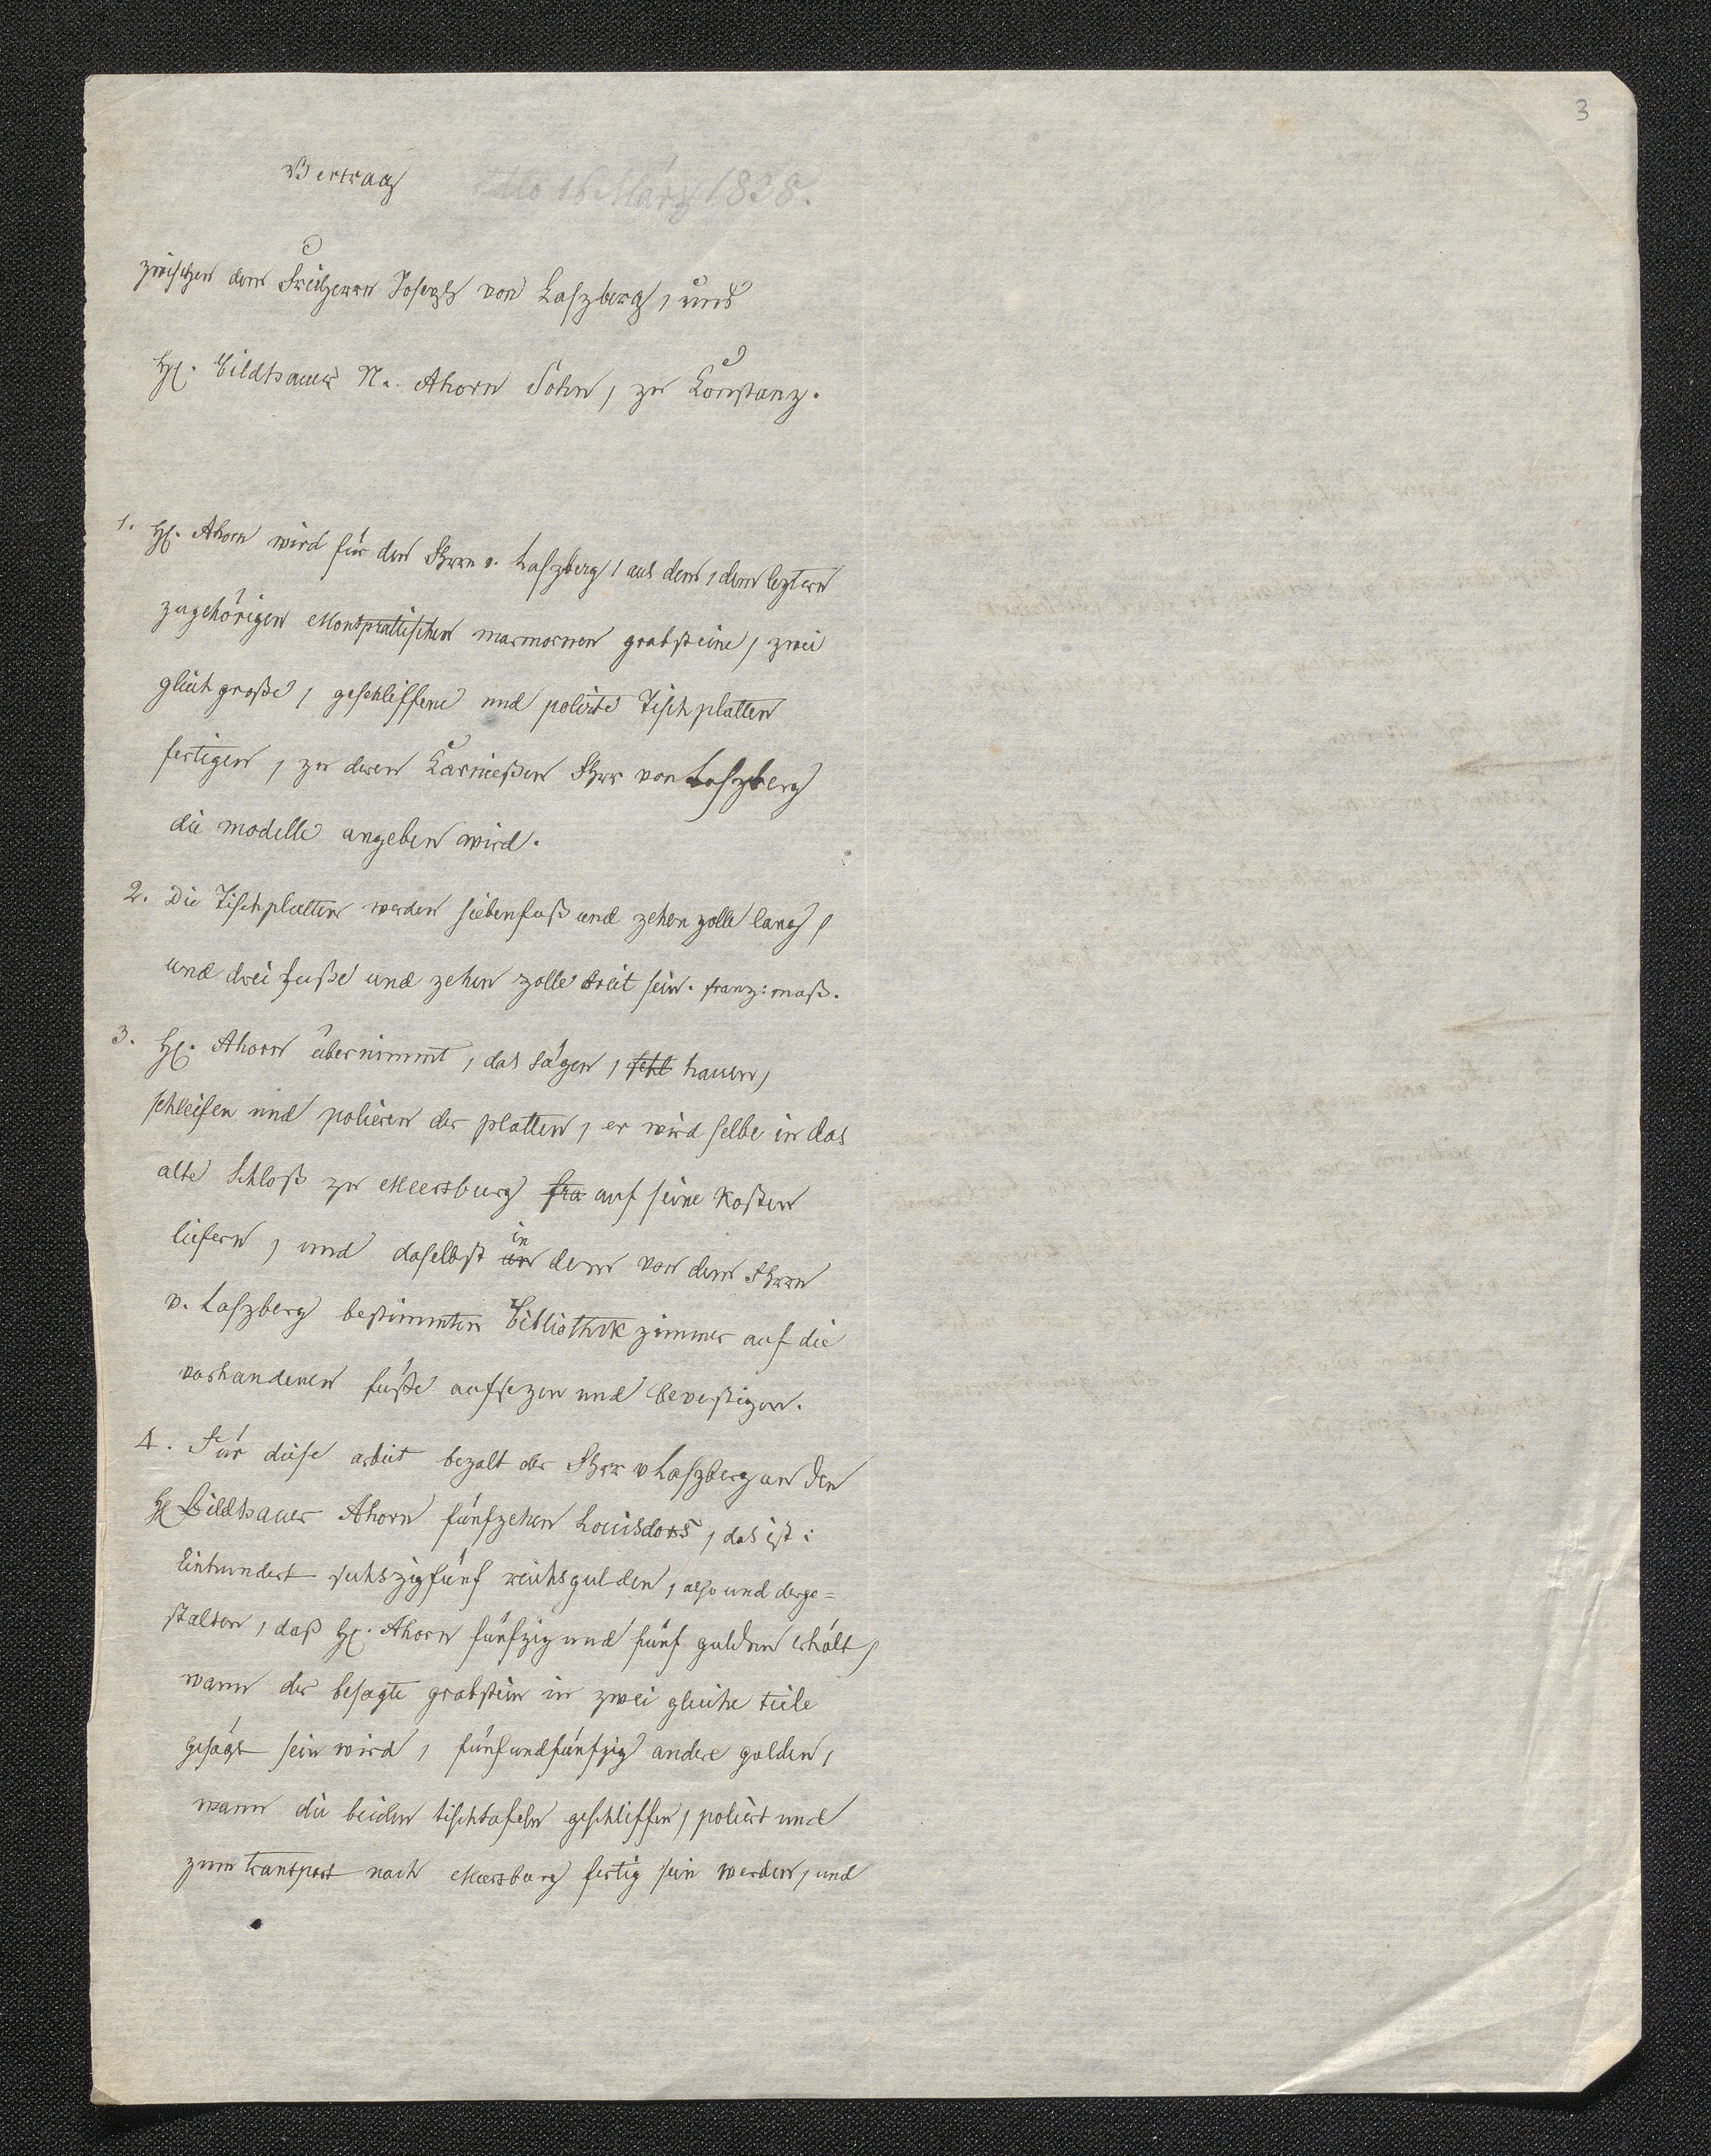 3
Vertrag
16 März 1838.
zwischen dem Freiherrn Joseph von Laszberg, und
H. Bildhauer N. Ahorn Sohn, zu Constanz.
1. H. Ahorn wird für den Fhrrn v. Laszberg, aus dem, dem leztern
zugehörigen Montpratischen marmornen grabsteine, zwei
gleich große, geschliffene und polirte Tischplatten
fertigen, zu deren Carnießen Fhrr von Laszberg
die modelle angeben wird.
2. Die Tischplatten werden siebenfuß und zehen zolle lang,
und drei fuße und zehen zolle breit sein. franz: maß.
3. H. Ahorn übernimmt, das sägen, schl hauen,
schleifen und polieren der platten, er wird selbe in das
alte Schloß zu Meersburg fra auf seine kosten
liefern, und daselbst an in dem von dem Fhrrn
v. Laszberg bestimmten Bibliothek zimmer auf die
vorhandenen füße aufsezen und bevestigen.
4. Für diese arbeit bezalt der Fhrr v Laszberg an den
H Bildhauer Ahorn fünfzehen Louisdors, das ist:
Einhundert sechszigfünf reichsgulden, also und derge=
stalten, daß H. Ahorn fünfzig und fünf gulden erhält,
wann der besagte grabstein in zwei gleiche teile
gesägt sein wird, fünfundfünfzig andere gulden,
wann die beiden tischtafeln geschliffen, poliert und
zum transport nach Meersburg fertig sein werden, und